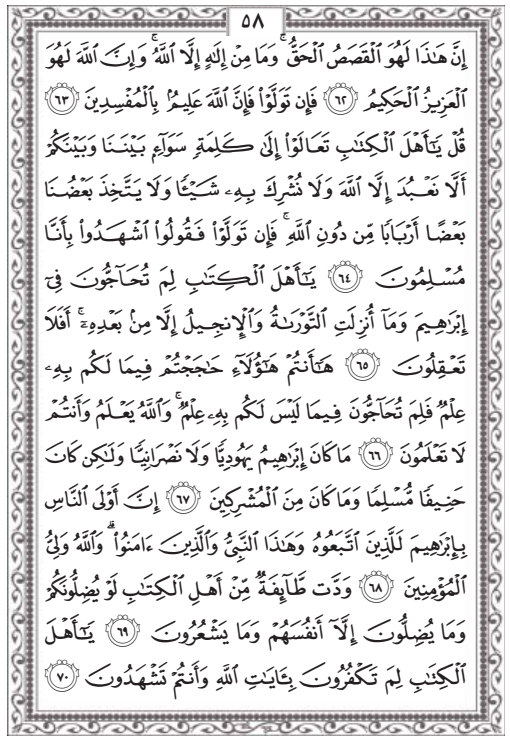 ٥٨
إِنَّ هَٰذَا لَهُوَ ٱلْقَصَصُ ٱلْحَقُّۚ وَمَا مِنْ إِلَٰهٍ إِلَّا ٱللَّهُۚ وَإِنَّ ٱللَّهَ لَهُوَ
ٱلْعَزِيزُ ٱلْحَكِيمُ ٦٢ فَإِن تَوَلَّوْا۟ فَإِنَّ ٱللَّهَ عَلِيمٌۢ بِٱلْمُفْسِدِينَ ٦٣
قُلْ يَٰٓأَهْلَ ٱلْكِتَٰبِ تَعَالَوْا۟ إِلَىٰ كَلِمَةٍ سَوَآءٍۭ بَيْنَنَا وَبَيْنَكُمْ
أَلَّا نَعْبُدَ إِلَّا ٱللَّهَ وَلَا نُشْرِكَ بِهِۦ شَيْـًٔا وَلَا يَتَّخِذَ بَعْضُنَا
بَعْضًا أَرْبَابًا مِّن دُونِ ٱللَّهِۚ فَإِن تَوَلَّوْا۟ فَقُولُوا۟ ٱشْهَدُوا۟ بِأَنَّا
مُسْلِمُونَ ٦٤ يَٰٓأَهْلَ ٱلْكِتَٰبِ لِمَ تُحَآجُّونَ فِىٓ
إِبْرَٰهِيمَ وَمَآ أُنزِلَتِ ٱلتَّوْرَىٰةُ وَٱلْإِنجِيلُ إِلَّا مِنۢ بَعْدِهِۦٓۚ أَفَلَا
تَعْقِلُونَ ٦٥ هَٰٓأَنتُمْ هَٰٓؤُلَآءِ حَٰجَجْتُمْ فِيمَا لَكُم بِهِۦ
عِلْمٌ فَلِمَ تُحَآجُّونَ فِيمَا لَيْسَ لَكُم بِهِۦ عِلْمٌۚ وَٱللَّهُ يَعْلَمُ وَأَنتُمْ
لَا تَعْلَمُونَ ٦٦ مَا كَانَ إِبْرَٰهِيمُ يَهُودِيًّا وَلَا نَصْرَانِيًّا وَلَٰكِن كَانَ
حَنِيفًا مُّسْلِمًا وَمَا كَانَ مِنَ ٱلْمُشْرِكِينَ ٦٧ إِنَّ أَوْلَى ٱلنَّاسِ
بِإِبْرَٰهِيمَ لَلَّذِينَ ٱتَّبَعُوهُ وَهَٰذَا ٱلنَّبِىُّ وَٱلَّذِينَ ءَامَنُوا۟ۗ وَٱللَّهُ وَلِىُّ
ٱلْمُؤْمِنِينَ ٦٨ وَدَّت طَّآئِفَةٌ مِّنْ أَهْلِ ٱلْكِتَٰبِ لَوْ يُضِلُّونَكُمْ
وَمَا يُضِلُّونَ إِلَّآ أَنفُسَهُمْ وَمَا يَشْعُرُونَ ٦٩ يَٰٓأَهْلَ
ٱلْكِتَٰبِ لِمَ تَكْفُرُونَ بِـَٔايَٰتِ ٱللَّهِ وَأَنتُمْ تَشْهَدُونَ ٧٠